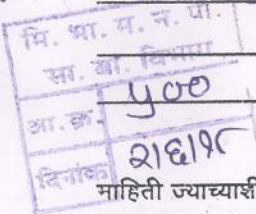 मि. भा. म. न. पा.
सा. बां. विभाग
आ. क्र. ५००
दिनांक २/६/१८
माहिती ज्याच्याशी